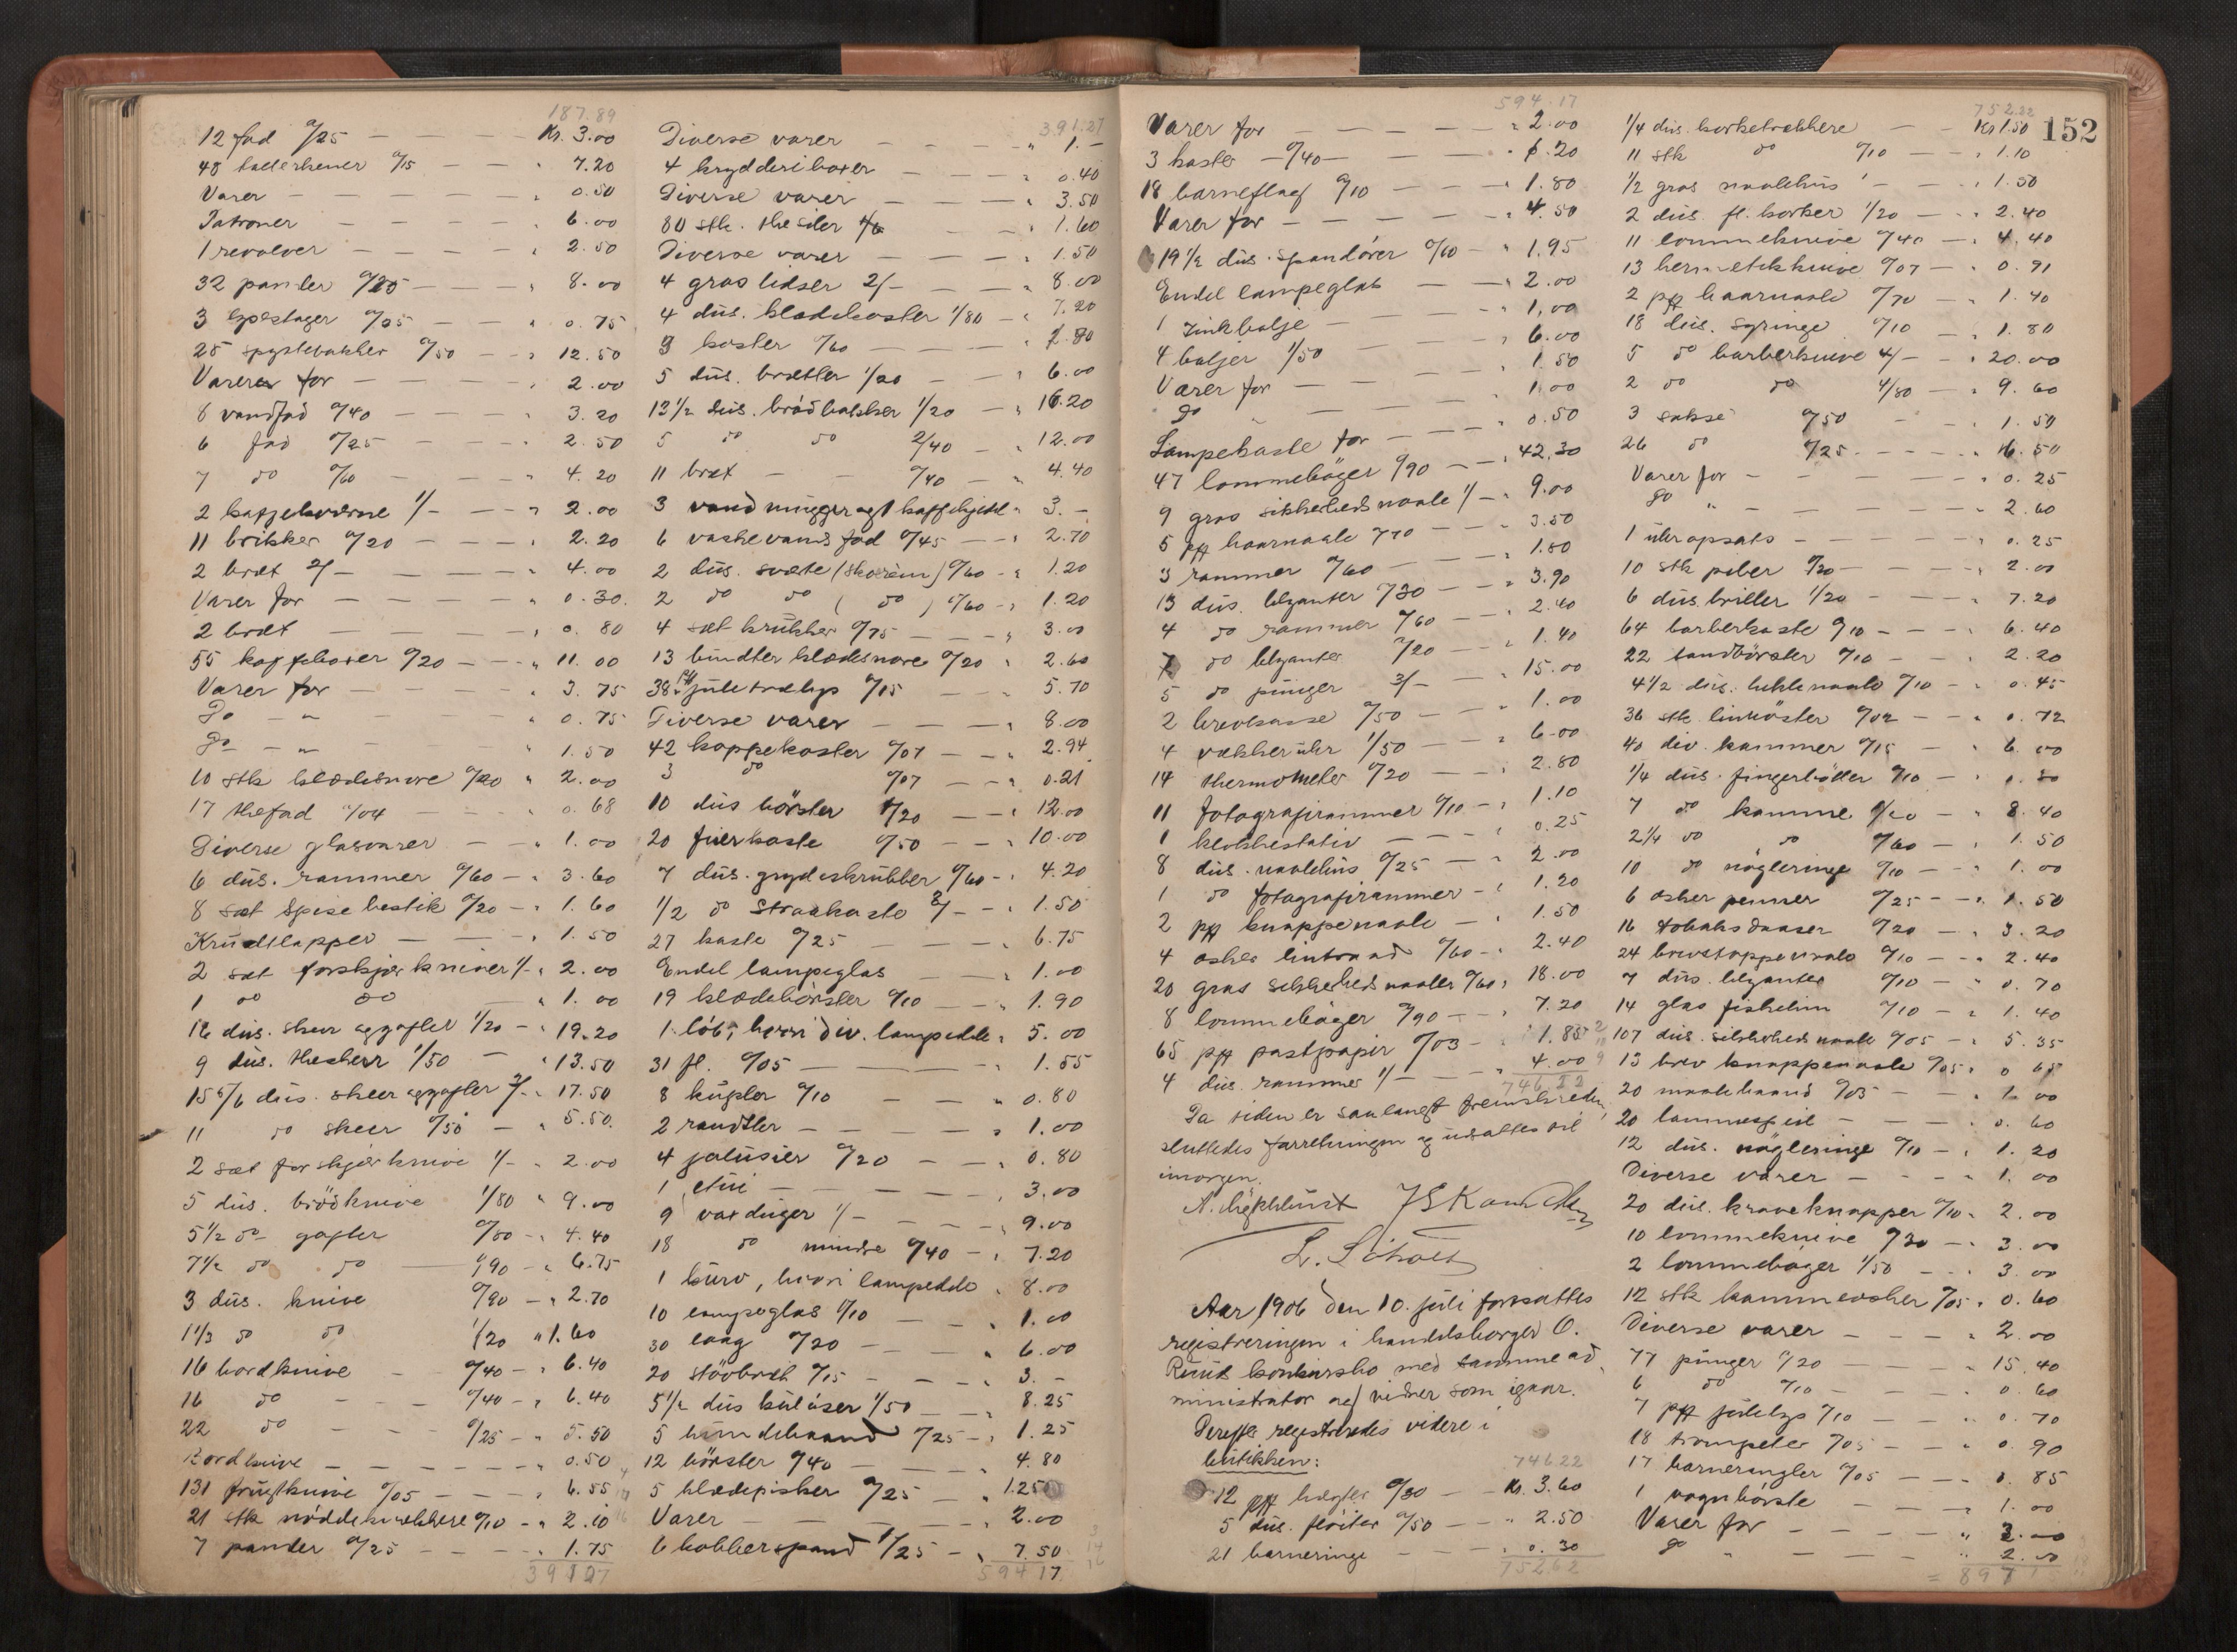 187.89
12 fad 0/25 — — — Kr. 3.00
48 tallerkener 0/15 — — " 7.20
Varer — — — " 0.50
Patroner — — " 6.00
1 revolver — — — " 2.50
32 pander 0/25 — — — " 8.00
3 0/25 — — " 0.75
25 spyttebakker 0/50 — — " 12.50
Varer for — — — " 2.00
8 vandfad 0/40 — — — " 3.20
6 fad 0/25 — — — " 2.50
7 do 0/60 — — — " 4.20
2 kaffekværne 1/- — — " 2.00
11 brikker 0/20 — — — " 2.20
2 bræt 2/- — — — " 4.00
Varer for — — — " 0.30.
2 bræt — — — " 0.80
55 kaffeboxer 0/20 — — " 11.00
Varer for — — — " 3.75
Do — " — — " 0.75
Do — " — — " 1.50
10 stk klædesnore 0/20 " 2.00
17 thefad 0/04 — — " 0.68
Diverse glasvarer — — " 1.00
6 düs. rammer 0/60 — " 3.60
8 sæt Spisebestik 0/20 — " 1.60
Krudtlapper — — — " 1.50
2 sæt forskjærkniver 1/- " 2.00
1 do do — " 1.00
16 düs. skeer og gafler 1/20 — " 19.20
9 düs. theskeer 1/50 — " 13.50
15 5/6 düs. skeer og gafler " 17.50
11 do skeer 0/50 — " 5.50.
2 sæt forskjærknive 1/- " 2.00
5 düs. brödknive 1/80 " 9.00
5 1/2 do gafler 0/80 — " 4.40
7 1/2 do do — 0/90 — " 6.75
3 düs. knive 0/90 — " 2.70
1 1/3 do do 1/20 " 1.60
16 bordknive — 0/40 — " 6.40
16 do — — 0/40 — " 6.40
22 do — — 0/25 — " 5.50
Bordknive — — — " 0.50
131 frügtknive 0/05 — — " 6.55
21 stk nöddeknækkere 0/10 — " 2.10
7 pander 0/25 — — — " 1.75
391.27
391.27
Diverse varer — — — " 1.-
4 krydderiboxer — — — " 0.40
Diverse varer — — — " 3.50
80 stk. thesiler — — " 1.60
Diverse varer — — — " 1.50
4 gros lidser 2/- — — " 8.00
4 düs. klædekoster 1/80 — " 7.20
3 koster 0/60 — — — " 1.80
5 düs. brætter 1/20 — — " 6.00
13 1/2 düs. brödbakker 1/20 — " 16.20
5 do do 2/40 — " 12.00
11 bræt — — 0/40 — " 4.40
3 vandmügger og 1 kaffekjedel " 3.-
6 vaskevandsfad 0/45 — — " 2.70
2 düs. sværte (skocrème) 0/60 — " 1.20
2 do do ( do ) 0/60 — " 1.20
4 sæt krükker 0/75 — — — " 3.00
13 bündter klædesnore 0/20 " 2.60
38 pk juletrælys 0/15 — — " 5.70
Diverse varer — — — " 8.00
42 koppekoster 0/07 — — " 2.94
3 do 0/07 — — " 0.21
10 düs börster 1/20 — — " 12.00
20 fuerkoste 0/50 — — " 10.00
7 düs. grydeskrübber 0/60 — " 4.20
1/2 do Straakoste 3/- — " 1.50
27 koste 0/25 — — — " 6.75
Endel lampeglas — — " 1.00
19 klædebörster 0/10 — — " 1.90
1 löb, hvori div. lampedele " 5.00
31 fl. 0/05 — — — " 1.55
8 kügler 0/10 — — " 0.80
2 — — — " 1.00
4 jalusier 0/20 — — " 0.80
1 etui — — — " 3.00
9 vaxdüger 1/- — — — " 9.00
18 do mindre 0/40 — " 7.20
1 kürv, hvori lampedele " 8.00
10 lampeglas 0/10 — — " 1.00
30 laag 0/20 — — — " 6.00
20 stövbræt 0/15 — — — " 3.-
5 1/2 düs külöser 1/50 — — " 8.25
5 hündebaand 0/25 — " 1.25
12 börster 0/40 — — " 4.80
5 klædepisker 0/25 — " 1.25
Varer — — — " 2.00
6 kobberspand 1/25 — " 7.50
594.17
594.17
Varer for — — — " 2.00
3 koster — 0/40 — — — " 1.20
18 barneflag 0/10 — — — " 1.80
Varer for — — — — " 4.50
19 1/2 düs. 0/10 — " 1.95
Endel lampeglas — — " 2.00
1 zinkbalje — — — " 1.00
4 baljer 1/50 — — — " 6.00
Varer for — — — " 1.50
Do " — — — " 1.00
Lampekaste for — — — " 0.50
47 lommebøger 0/90 — — " 42.30
9 gros sikkerhedsnaale 1/- — " 9.00
5 pk haarnaale 0/70 — — " 3.50
3 rammer 0/60 — — — " 1.80
13 düs. blyanter 0/30 — — " 3.90
4 do rammer 0/60 — — " 2.40
7 do blyanter 0/20 — — " 1.40
5 do pünger 3/- — — " 15.00
2 brevkasse 0/50 — — " 1.00
4 vækkerühr 1/50 — — " 6.00
14 thermometer 0/20 — — " 2.80
11 fotografirammer 0/10 — " 1.10
1 klokkestativ — — — " 0.25
8 düs. naalehüs 0/25 — — " 2.00
1 do fotografirammer — " 1.20
2 pk knappenaale — " 1.50
4 æsker lintraad 0/60 — " 2.40
20 gros sikkerhedsnaaler 0/90 " 18.00
8 lommebøger 0/90 — — " 7.20
65 pk postpapir 0/03 — " 1.85
4 düs. rammer 1/- — — " 4.00
746.22
Da tiden er saalangt fremskreden
sluttedes forretningen og udsattes til
imorgen.
L. Scholtz
Aar 1906 den 10. juli fortsattes
registreringen i handelsborger O.
Ruuds konkursbo med samme ad
ministrator og vidner som igaar.
Derefter registreredes videre i
butikken:
746.22
12 pk hægter 0/30 — Kr. 3.60
5 düs. flöiter 0/50 — " 2.50
21 barneringe — — " 0.30
752.62
752.22
152
1/4 düs. korketrækkere — Kr 1.50
11 stk do 0/10 — — " 1.10
1/2 gros naalehüs — — — " 1.50
2 düs. fl. korker 1/20 — — " 2.40
11 lommeknive 0/40 — " 4.40
13 hermetikknive 0/07 — " 0.91
2 pk haarnaale 0/70 — — " 1.40
18 düs. syringe 0/10 — — " 1.80
5 do barberknive 4/- — " 20.00
2 do do 4/80 — " 9.60
3 sakse 0/50 — — " 1.50
26 do 0/25 — — — " 6.50
Varer for — — — — " 0.25
Do " — — — — " 2.60
1 ühropsats — — — — " 0.25
10 stk piber 0/20 — — — " 2.00
6 düs. briller 1/20 — — — " 7.20
64 barberkoste 0/10 — — — " 6.40
22 tandbörster 0/10 — — " 2.20
4 1/2 düs. heklenaale 0/10 — " 0.45
36 stk 0/02 — — " 0.72
40 div. kammer 0/15 — " 6.00
1/4 düs. fingerböller 0/10 — "
7 do kamme 1/20 — " 8.40
2 1/4 do do 0/60 — " 1.50
10 do nögleringe 0/10 — — " 1.00
6 æsker penner 0/25 — — " 1.50
16 tobaksdaaser 0/20 — " 3.20
24 0/10 — — " 2.40
7 düs. blyanter 0/10 — " 0.70
14 glas fiskelim 0/10 — " 1.40
107 düs. sikkerhedsnaale 0/05 — " 5.35
13 brev knappenaale 0/05 " 0.65
20 maalebaand 0/05 — — " 1.00
20 lommespeil — — — " 0.60
12 düs. nögleringe 0/10 — " 1.20
Diverse varer — — — " 1.00
20 düs. kraveknapper 0/10 " 2.00
10 lommeknive 0/30 — " 3.00
2 lommebøger 1/50 — — " 3.00
12 stk kammeæsker 0/05 " 0.60
Diverse varer — — — " 2.00
77 pünger 0/20 — — — " 15.40
6 do 0/10 — — — " 0.60
7 pk jülelys 0/10 — — — " 0.70
18 trompeter 0/05 — — " 0.90
17 barnerangler 0/05 — — " 0.85
1 vognbörste — — — " 1.00
Varer for — — — " 2.00
Do " — — — " 2.00